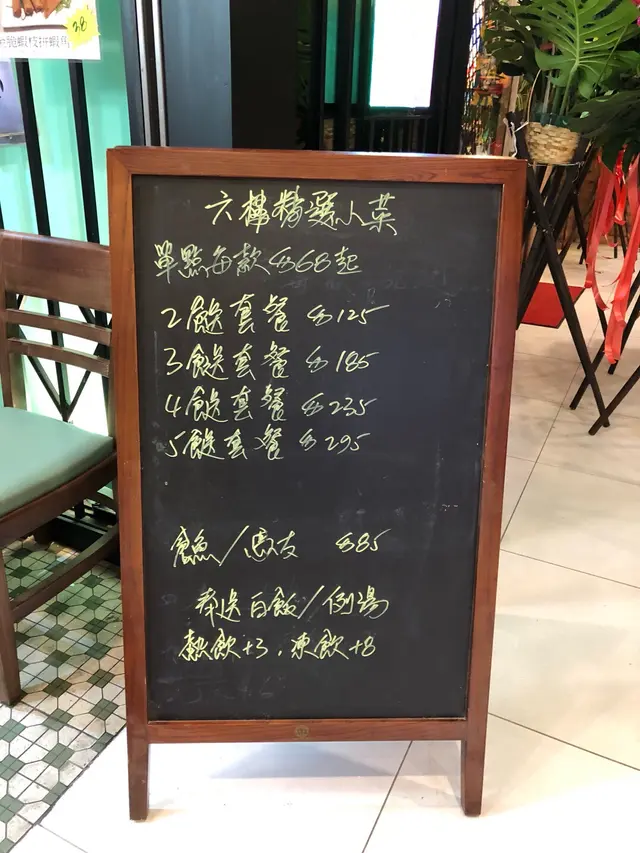 28
六樓精選小菜
單點每款$68起
2餸套餐 $125
3餸套餐 $185
4餸套餐 $235
5餸套餐 $295
倉魚/馬友 $85
奉送白飯/例湯
熱飲+3，凍飲+8